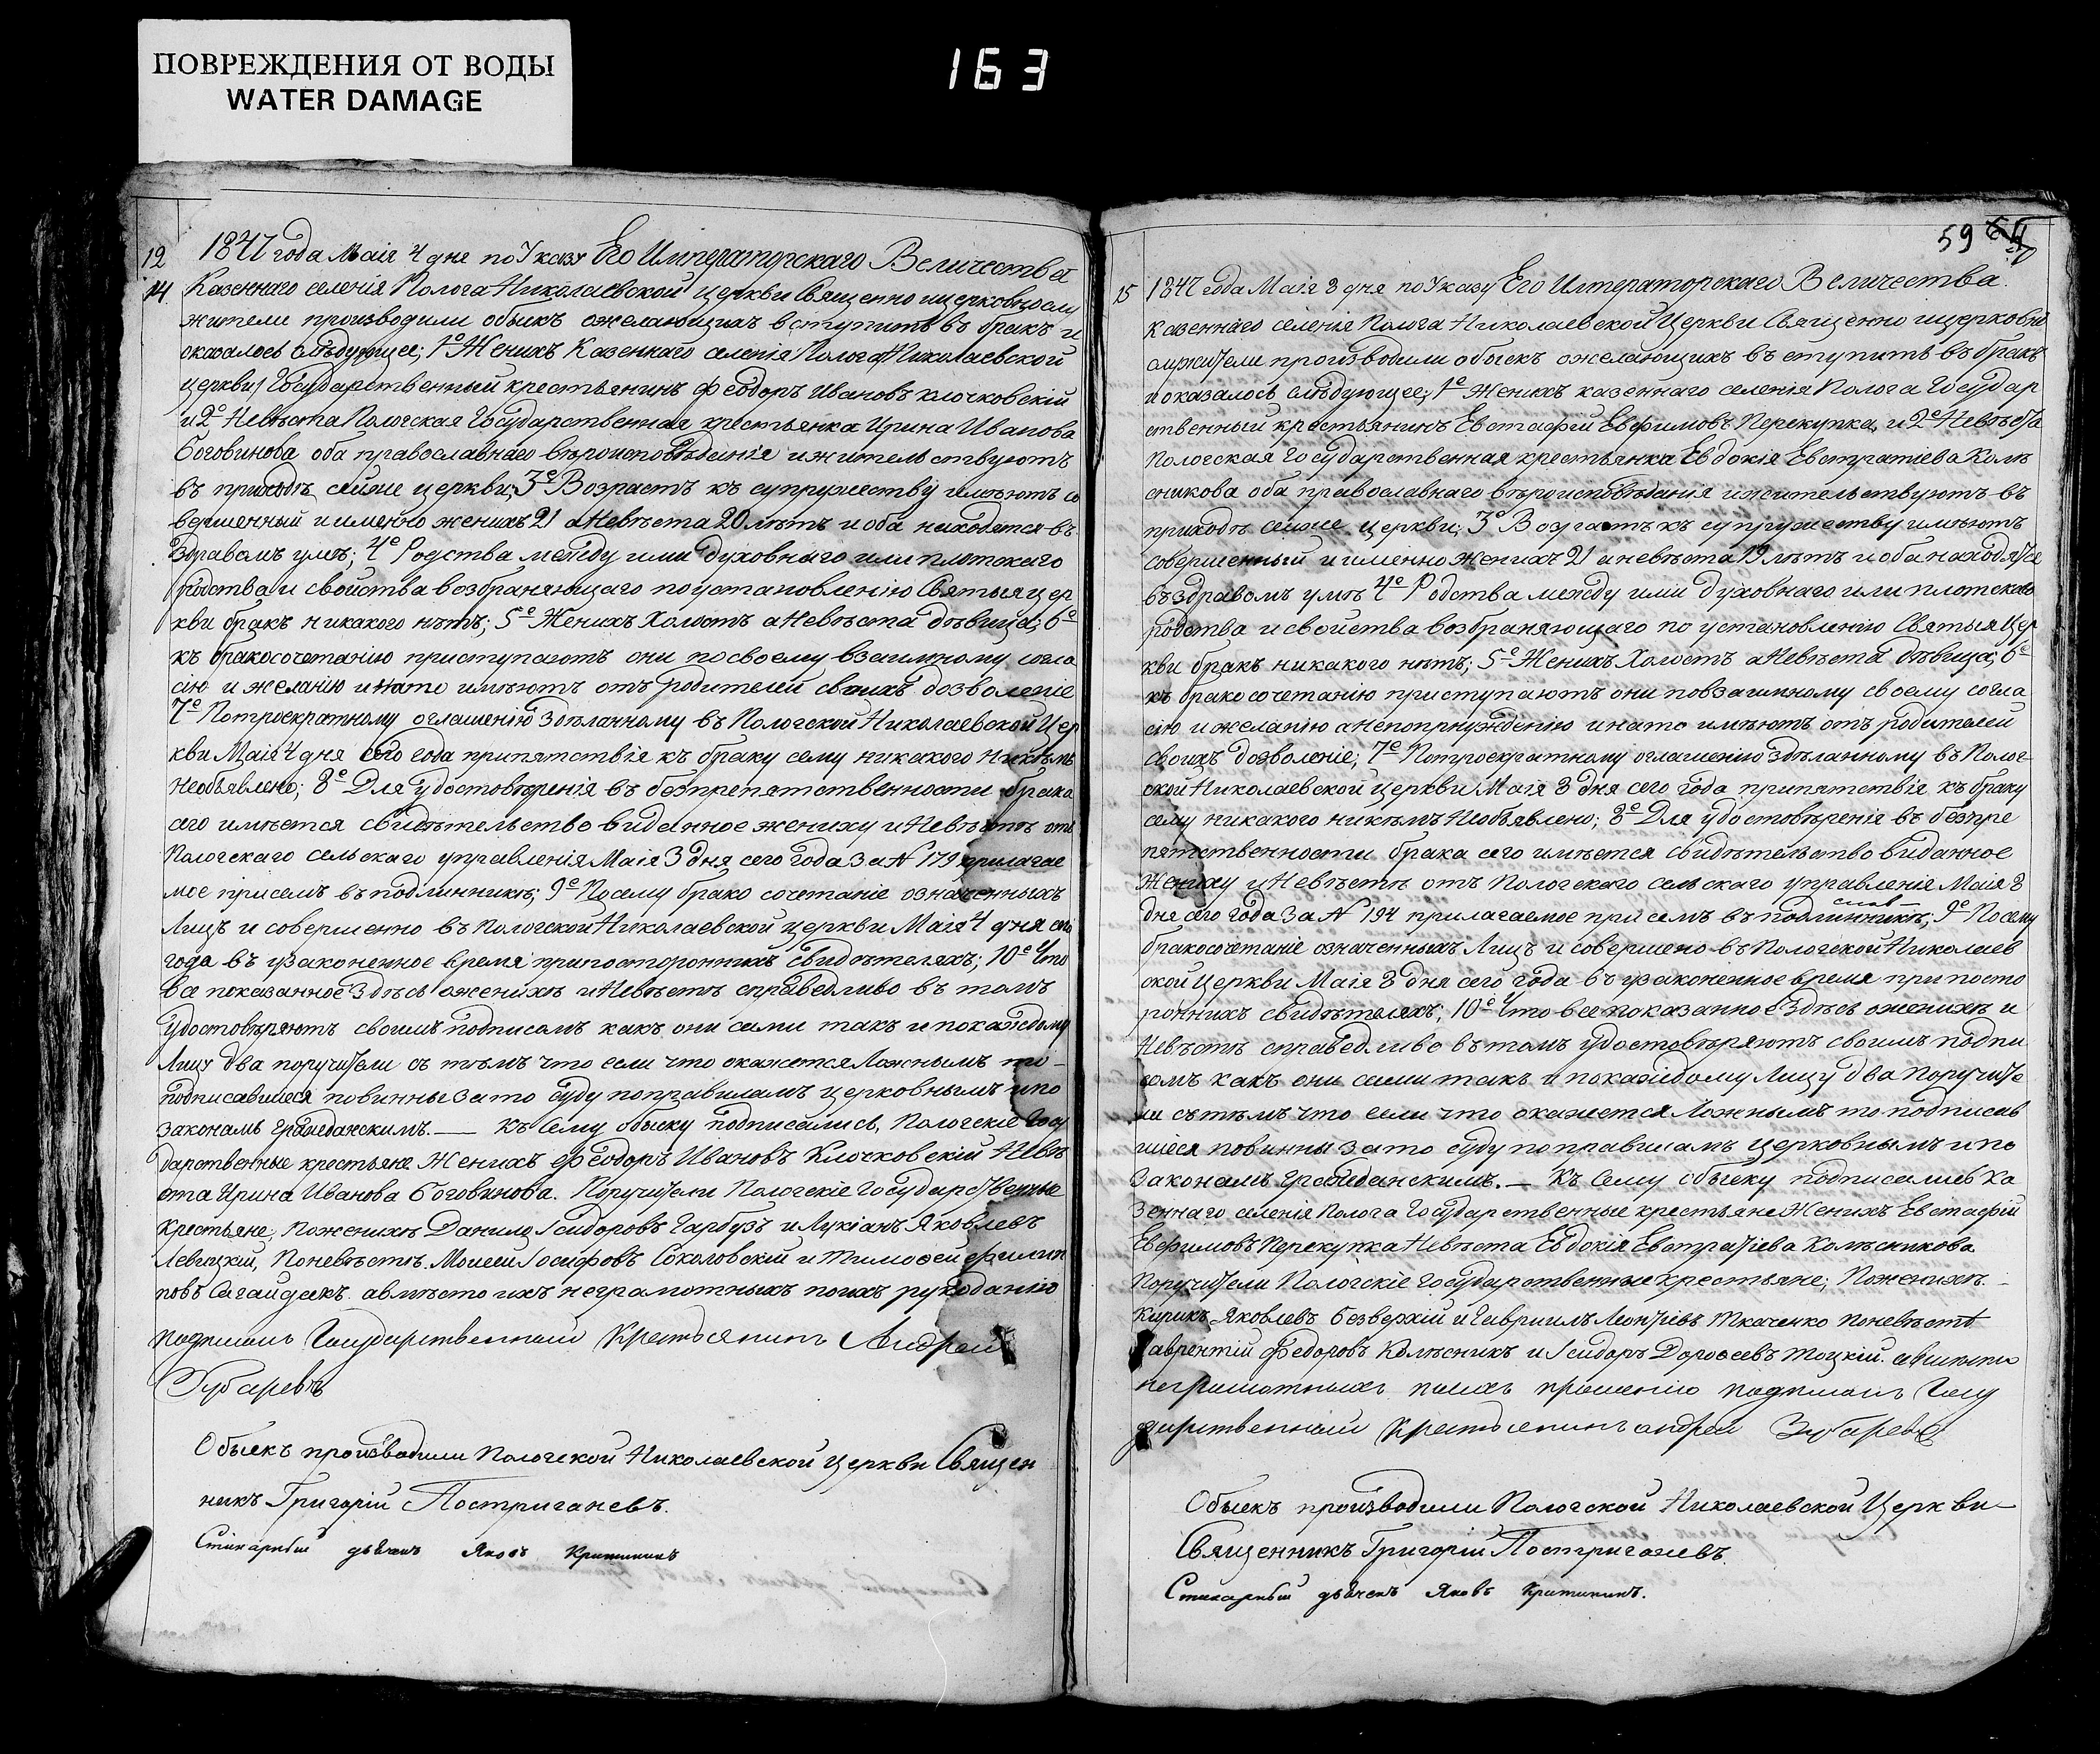 ПОВРЕЖДЕНИЯ ОТ ВОДЫ
WATER DAMAGE
163
12
14
1847 года Маія 4 дня по Указу Его Императорскаго Величества
Казеннаго селенія Полога Николаевской церкви Священно ицерковнослу
жители производили обыскъ ожелающихъ вступить въ бракъ и
оказалось слѣдующее; 1е Женихъ Казеннаго селенія Полога Николаевской
церкви Государственный крестьянинъ Феодоръ Ивановъ Клочковскій
и 2е Невѣста Пологская Государственная крестьянка Ирина Иванова
Боговинова оба православнаго вѣроисповѣданія ижительствуютъ
въ приходѣ сейже церкви; 3е Возрастъ къ супружеству имѣютъ со
вершенный и именно женихъ 21 аНевѣста 20 лѣтъ и оба находятся въ
здравомъ умѣ; 4е Родства между ими духовнаго или плотскаго
родства и свойства возбраняющаго по установленію Святыя цер
кви бракъ никакого нѣтъ; 5е Женихъ Холостъ аНевѣста дѣвица; 6е
къ бракосочетанію приступаютъ они по своему взаимному согла
сію и желанію инато имѣютъ отъ родителей своихъ дозволеніе
7е Потроекратному оглашенію Здѣланному въ Пологской Николаевской Цер
кви Маія 4 дня сего года припятствія къ браку сему никакого никѣмъ
необъявлено; 8е Для удостовѣренія въ безпрепятственности брака
сего имѣется свидѣтельство виданное жениху иНевѣстѣ отъ
Пологскаго сельскаго управленія Маія 3 дня сего года За № 179 прилагае
мое присемъ въ подлинникѣ; 9е Посему брако сочетаніе означенныхъ
Лицъ и совершенно въ Пологской Николаевской церкви Маія 4 дня сего
года въ узаконенное время припосторонихъ свидѣтеляхъ; 10е Что
все показанное Здѣсь оженихѣ иНевѣстѣ справедливо въ томъ
удостовѣряютъ своимъ подписомъ какъ они сами такъ и покаждому
Лицу два поручители съ тѣмъ что если что окажется Ложнымъ то
подписавшіеся повинны зато суду поправиламъ церковнымъ ипо
законамъ гражданскимъ. — Къ Сему обыску подписались, Пологскіе Госу
дарственные крестьяне Женихъ Феодоръ Ивановъ Клочковскій Невѣ
ста Ирина Иванова Боговинова. Поручители Пологскіе Государственные
крестьяне; Поженихѣ Данило Ісидоровъ Гарбузъ и Лукіанъ Яковлевъ
Левицкій, Поневѣстѣ. Моисей Іосифовъ Соколовскій и Тимофей Филип
повъ Сагайдакъ. авмѣсто ихъ неграмотныхъ поихъ рукоданію
подписалъ Государственный Крестьянинъ Андрей
Зубаревъ
Обыскъ производили Пологской Николаевской церкви Священ
никъ Григорій Постригачевъ.
Стихарный дьячекъ Яковъ Критинихъ
59
15
1847 года Маія 8 дня по Указу Его Императорскаго Величества.
Казеннаго селенія Полога Николаевской Церкви Священно ицерковно
служители производили обыскъ ожелающихъ въступить въ бракъ
и оказалось слѣдующее; 1е Женихъ казеннаго селенія Полога Государ
ственный крестьянинъ Евстафій Евфимовъ Перекупка, и 2е Невѣста
Пологская Государственная крестьянка Евдокія Евстратіева Колѣ
сникова оба православнаго вѣроисповѣданія ижительствуютъ въ
приходѣ сейже церкви; 3е Возрастъ къ супружеству имѣютъ
совершенный и именно женихъ 21 а невѣста 19 лѣтъ и оба находятся
въ здравомъ умѣ 4е Родства между ими духовнаго или плотскаго
родства и свойства возбраняющаго по установленію Святыя Цер
кви бракъ никакого нѣтъ; 5е Женихъ Холостъ аНевѣста дѣвица; 6е
къ брако сочетанію приступаютъ они повзаимному своему согла
сію и желанію анепопринужденію инато имѣютъ отъ родителей
своихъ дозволеніе; 7е Потроекратному оглашенію здѣланному въ Полог
ской Николаевской церкви Маія 8 дня сего года припятствія къ браку
сему никакого никѣмъ Необъявлено; 8е Для удостовѣренія въ безпре
пятственности брака сего имѣется свидѣтельство виданное
Жениху иНевѣстѣ отъ Пологскаго сельскаго управленія Маія 8
дня сего года За № 194 прилагаемое при семъ въ подлинникѣ; 9е Посему
бракосочетаніе означенныхъ Лицъ и совершено въ Пологской Николаев
ской Церкви Маія 8 дня сего года въ узаконенное время при посто
ронихъ свидѣтеляхъ; 10е Что все показанное Здѣсь оженихѣ и
Невѣстѣ справедливо въ томъ удостовѣряютъ своимъ подпи
сомъ какъ они сами такъ и покаждому Лицу два Поручите
ли съ тѣмъ что если что окажется Ложнымъ то подписав
шіеся повинны зато суду поправиламъ церковнымъ ипо
Законамъ гражданскимъ. — Къ Сему обыску подписались Ка
зеннаго селенія Полога Государственные крестьяне Женихъ Евстафій
Евфимовъ Перекупка Невѣста Евдокія Евстратіева Колѣсникова
Поручители Пологскіе Государственные крестьяне; Поженихѣ
Кирикъ Яковлевъ Безверхій и Гавриилъ Леонтіевъ Ткаченко поневѣстѣ
Лаврентій Федоровъ Колѣсникъ и Ісидоръ Дорофеевъ Тоцкій. авмѣсто
неграмотныхъ поихъ прошенію подписалъ Госу
дарственный Крестьянинъ андрей Зубаревъ
Обыскъ производили Пологской Николаевской Церкви
Священникъ Григорій Постригачевъ.
Стихарный дьячекъ Яковъ Критинихъ.